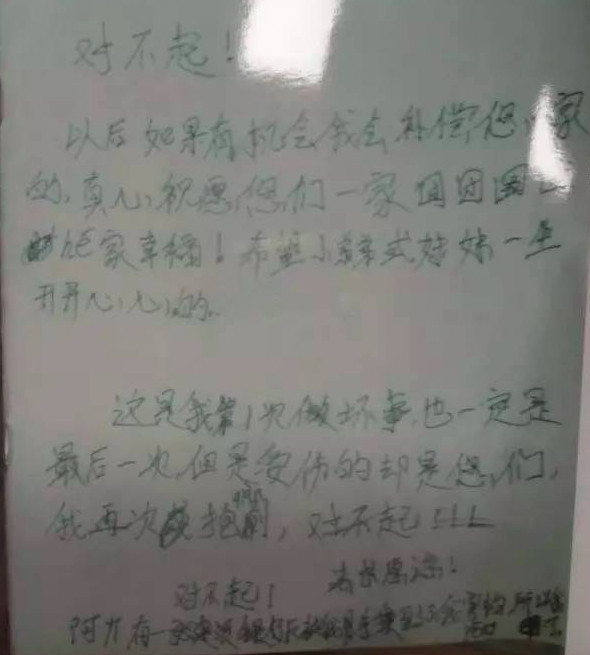 对不起！
以后如果有机会我会补偿您一家
的,真心祝愿您们一家团团圆
家幸福！希望小 妹一生
开开心心的。
这是我第1次做坏事,也一定是
最后一次,但是受伤的却是您们,
我再次抱歉,对不起！！！
求原谅！
对不起！
阿 有一